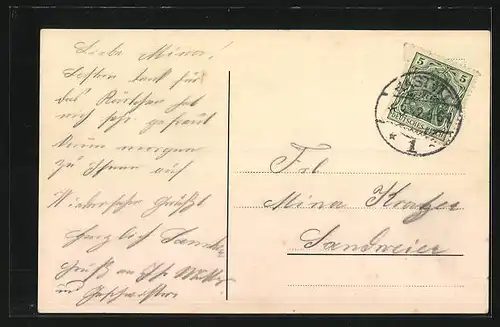 Liebe Mina!
Besten Dank für
das Kärtchen hat
mich sehr gefreut
komm morgen
zu Ihnen auf
Wiedersehn Grüßt
Herzlich
Gruß an
u Geschwister
5 5
DEUTSCHES REICH
* 1 *
Frl
Mina Kratzer
Sandweier